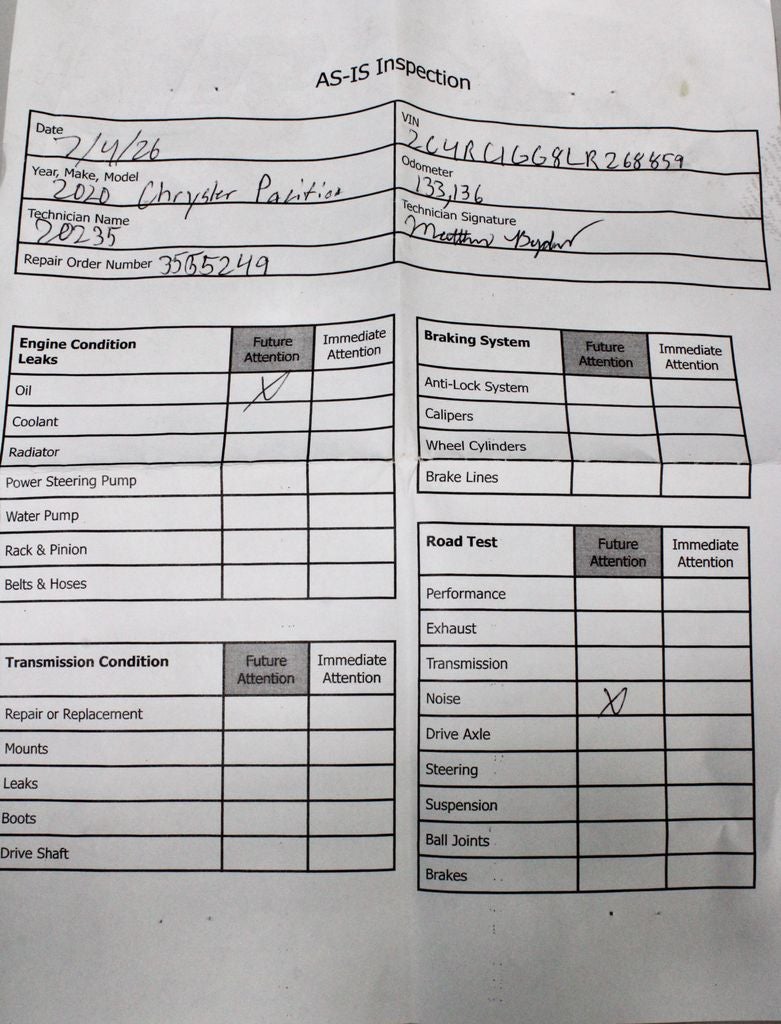 AS-IS Inspection
Date 2/4/26
VIN 2C4RC1GG8LR268859
Year, Make, Model 2020 Chrysler Pacifica
Odometer 133,136
Technician Name 20235
Technician Signature
Repair Order Number 3555249
Engine Condition Leaks Future Attention Immediate Attention
Oil X
Coolant
Radiator
Power Steering Pump
Water Pump
Rack & Pinion
Belts & Hoses
Transmission Condition Future Attention Immediate Attention
Repair or Replacement
Mounts
Leaks
Boots
Drive Shaft
Braking System Future Attention Immediate Attention
Anti-Lock System
Calipers
Wheel Cylinders
Brake Lines
Road Test Future Attention Immediate Attention
Performance
Exhaust
Transmission
Noise X
Drive Axle
Steering
Suspension
Ball Joints
Brakes